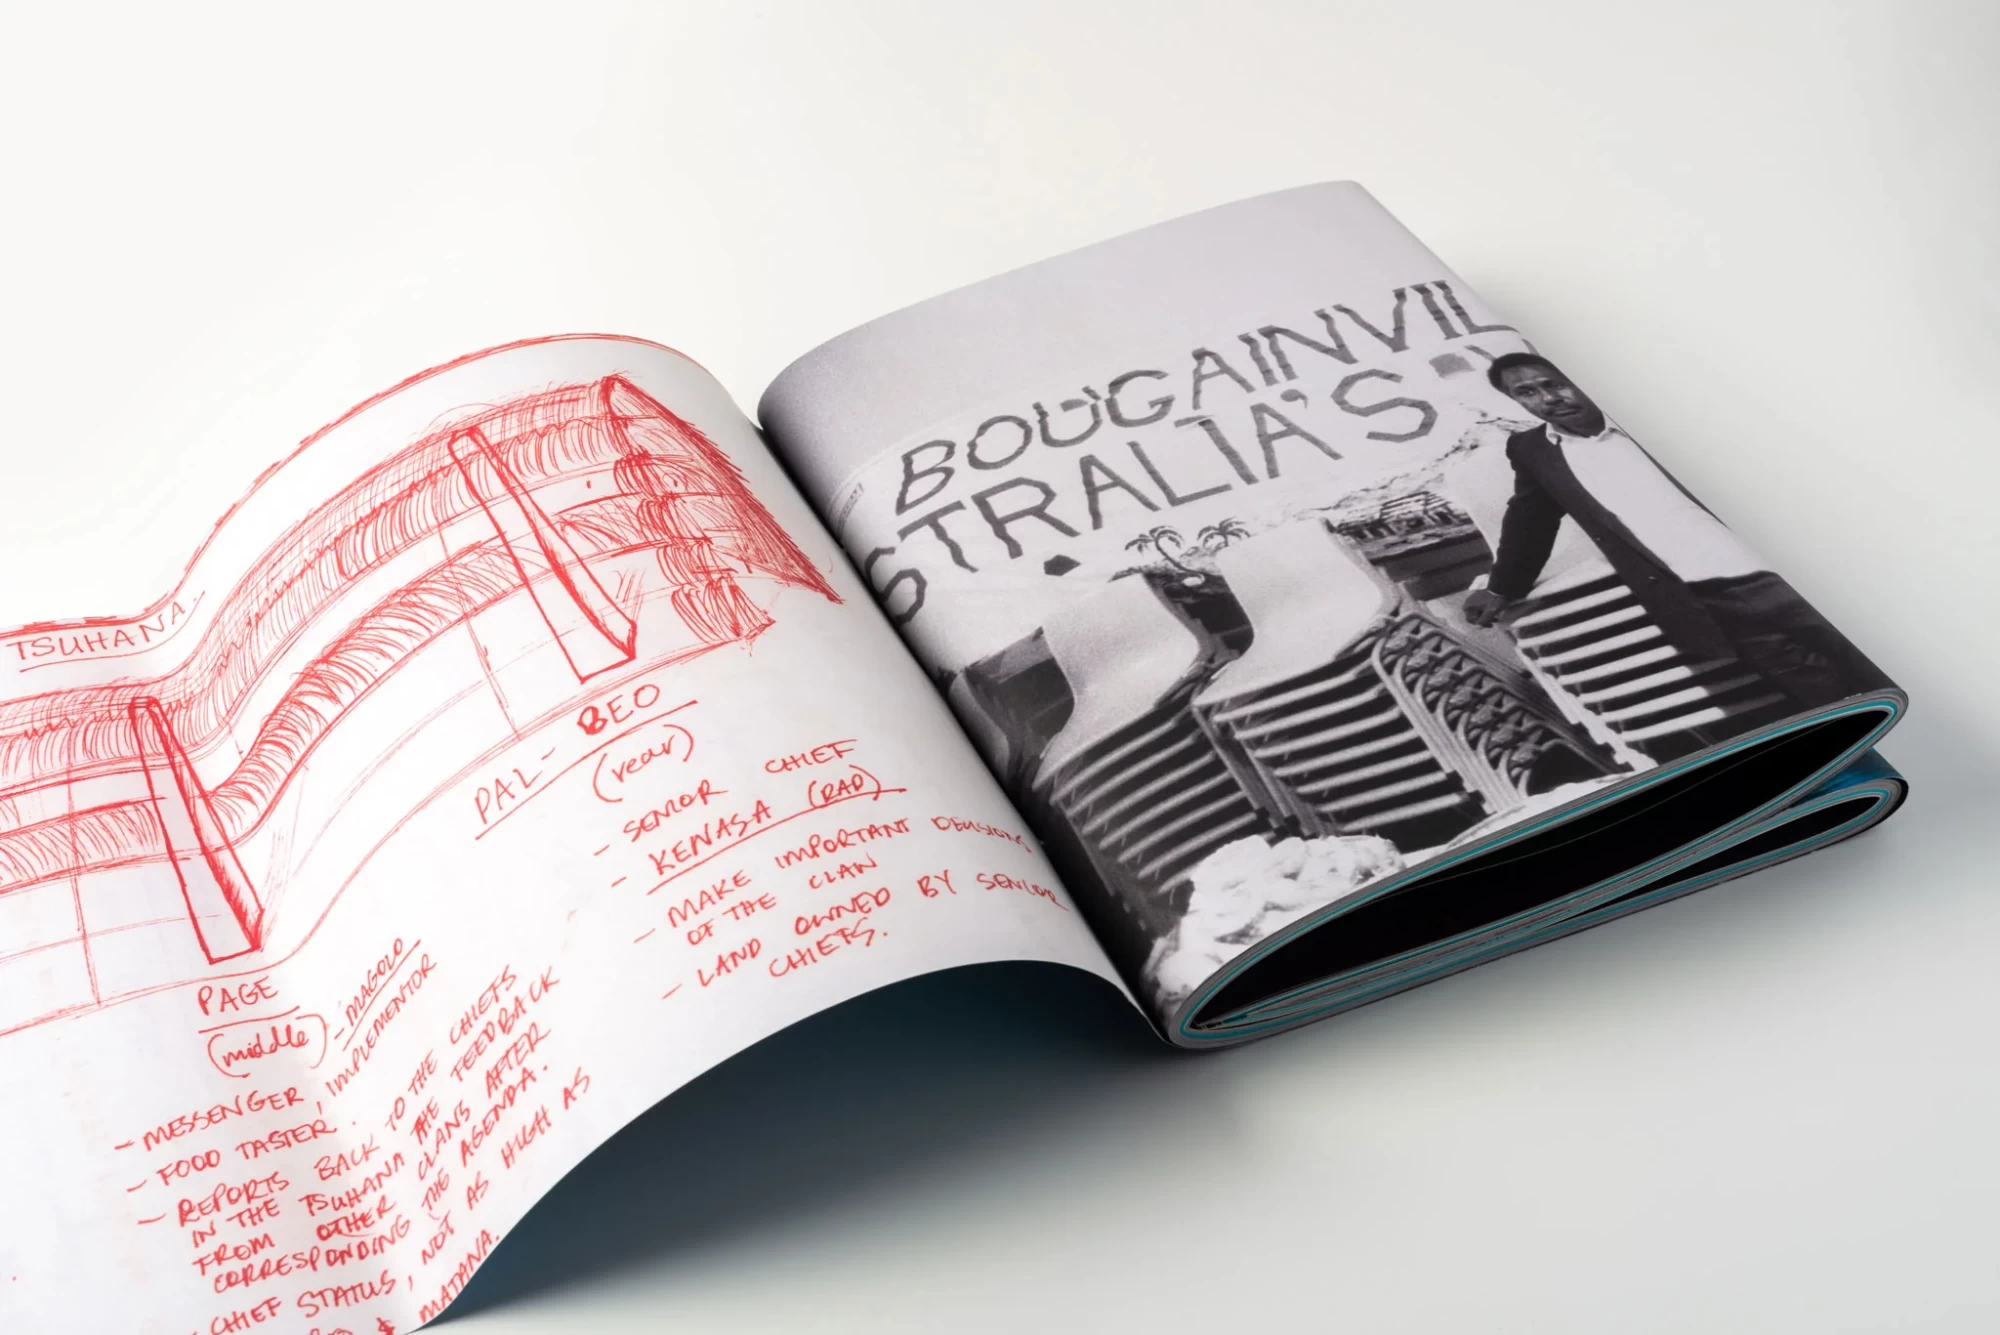 TSUHANA.
PAGE
(middle)
- MAGOLO
IMPLEMENTOR
- MESSENGER,
- FOOD TASTER.
- REPORTS BACK TO THE CHIEFS
IN THE TSUHANA THE FEEDBACK
FROM OTHER CLANS AFTER
CORRESPONDING THE AGENDA.
- CHIEF STATUS, NOT AS HIGH AS
& MATANA.
PAL- BEO
(rear)
- SENIOR CHIEF
- KENASA (RAD)
- MAKE IMPORTANT DECISIONS
OF THE CLAN
- LAND OWNED BY SENIOR
CHIEFS.
BOUGAINVIL
STRALIA'S